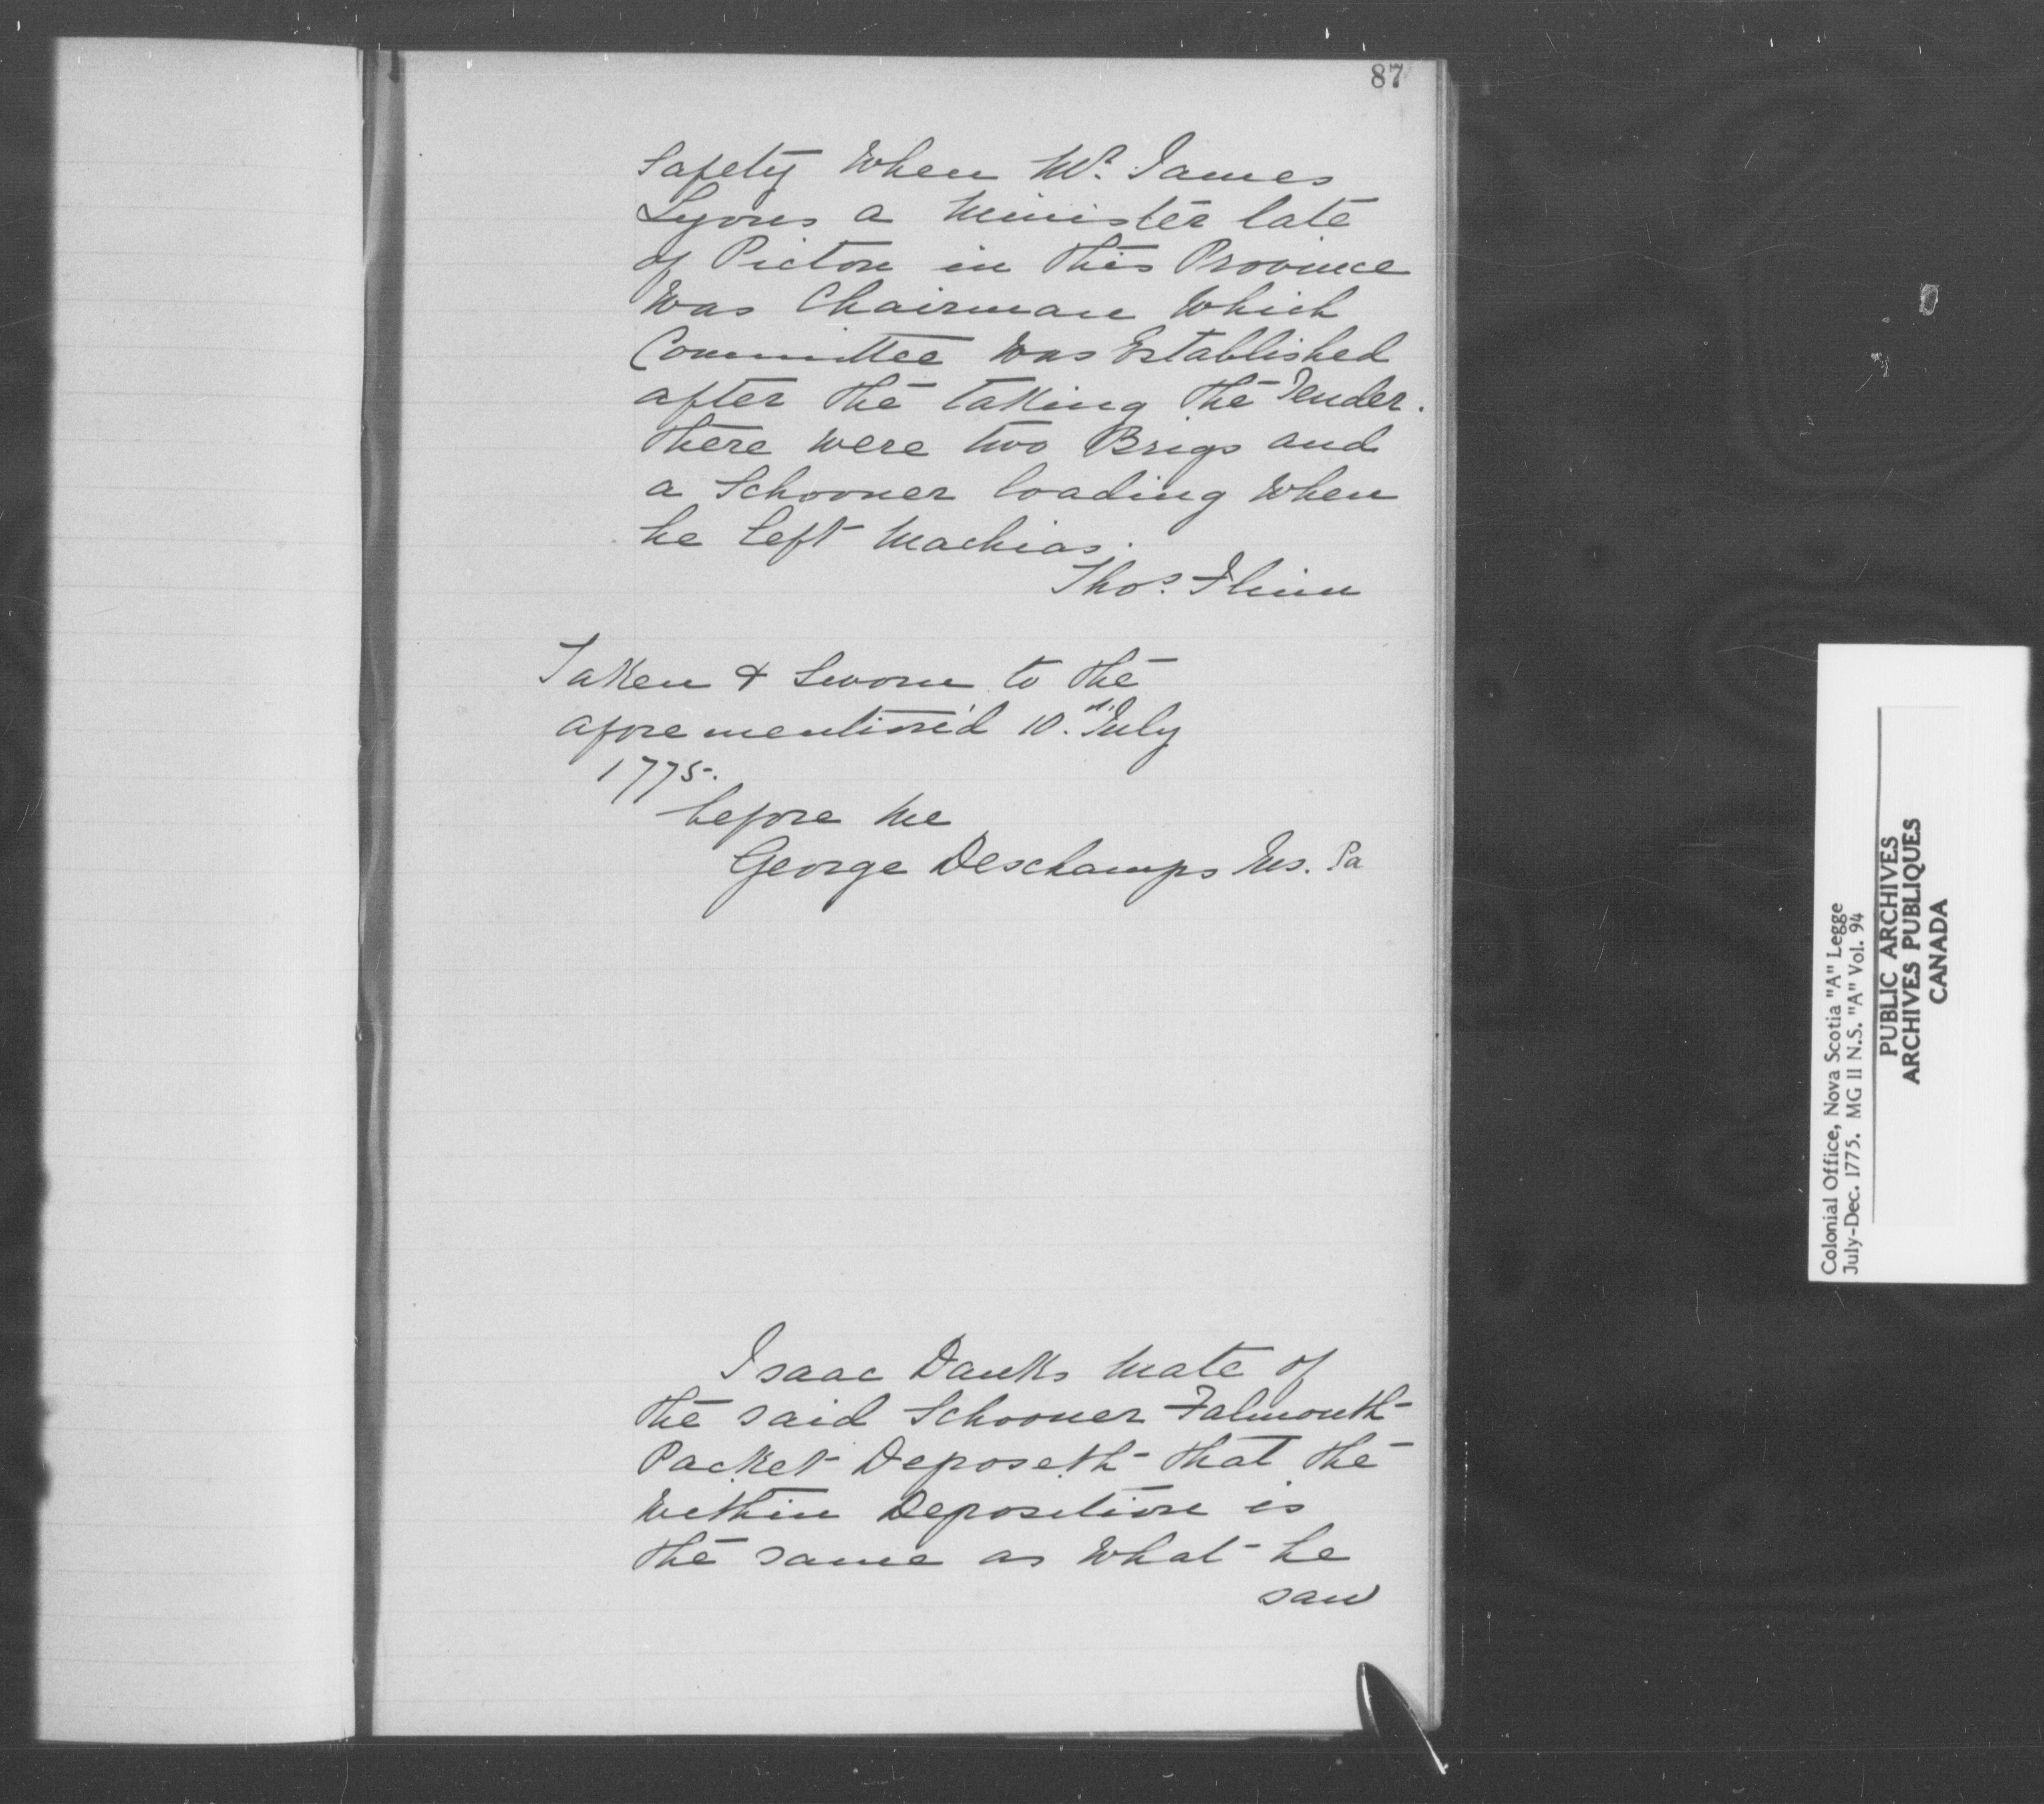 87
Safety When Mr. James
Lyons a Minister late
of Picton in this Province
Was Chairman Which
Committee was Established
after the taking the Tender.
there were two Brigs and
a Schooner loading When
he left Machias.
Thos. Flinn
Taken & Sworn to the
aforemention'd 10th July
1775.
before me
George Deschamps Jus. Pa
Isaac Danks Mate of
the said Schooner Falmouth
Packet Deposeth that the
Within Deposition is
the same as What he
saw
Colonial Office, Nova Scotia "A" Legge
July-Dec. 1775. MG 11 N.S. "A" Vol. 94
PUBLIC ARCHIVES
ARCHIVES PUBLIQUES
CANADA